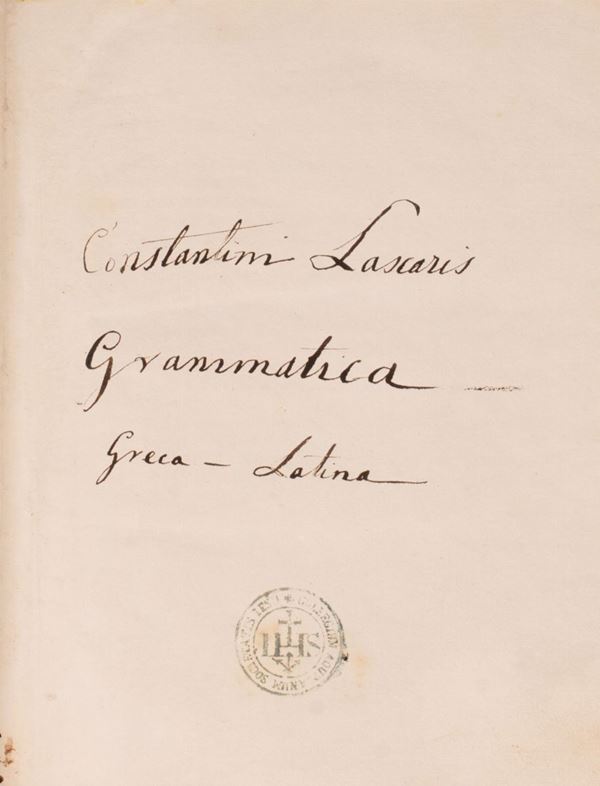 Constantini Lascaris
Grammatica
Greca - Latina
IHS